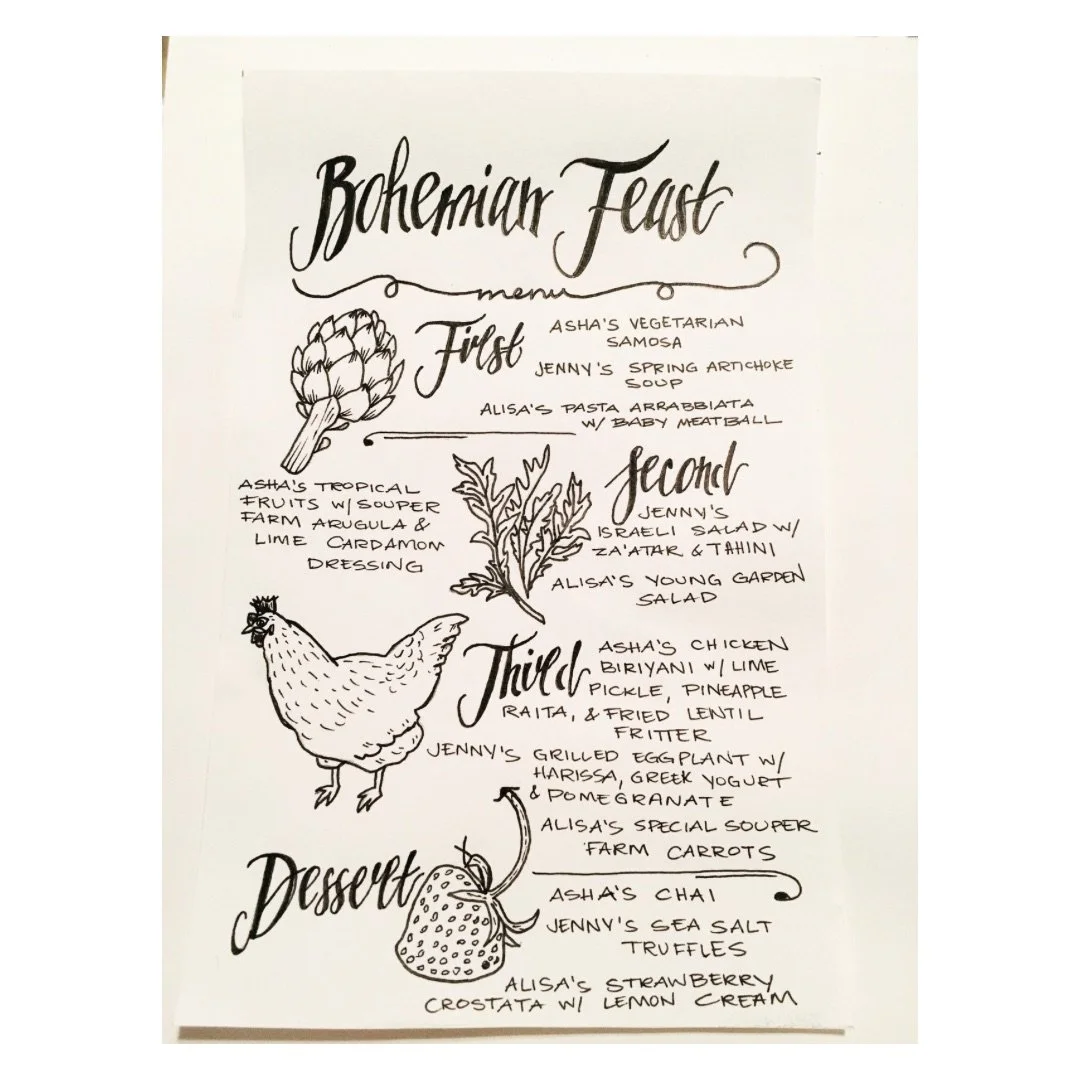 Bohemian Feast
menu
First
ASHA'S VEGETARIAN
SAMOSA
JENNY'S SPRING ARTICHOKE
SOUP
ALISA'S PASTA ARRABBIATA
W/ BABY MEATBALL
Second
ASHA'S TROPICAL
FRUITS W/ SOUPER
FARM ARUGULA &
LIME CARDAMON
DRESSING
JENNY'S
ISRAELI SALAD W/
ZA'ATAR & TAHINI
ALISA'S YOUNG GARDEN
SALAD
Third
ASHA'S CHICKEN
BIRIYANI W/ LIME
PICKLE, PINEAPPLE
RAITA, & FRIED LENTIL
FRITTER
JENNY'S GRILLED EGGPLANT W/
HARISSA, GREEK YOGURT
& POMEGRANATE
ALISA'S SPECIAL SOUPER
FARM CARROTS
Dessert
ASHA'S CHAI
JENNY'S SEA SALT
TRUFFLES
ALISA'S STRAWBERRY
CROSTATA W/ LEMON CREAM